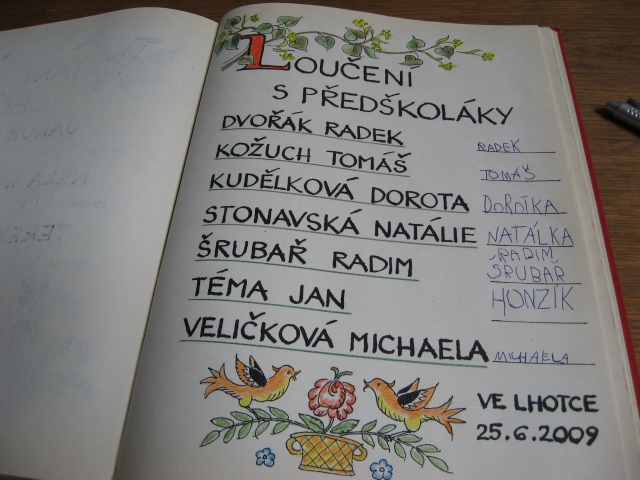 LOUČENI
S PŘEDŠKOLÁKY
DVOŘÁK RADEK RADEK
KOŽUCH TOMÁŠ TOMÁŠ
KUDĚLKOVÁ DOROTA DOROTKA
STONAVSKÁ NATÁLIE NATÁLKA
ŠRUBAŘ RADIM RADIM
ŠRUBAŘ
TÉMA JAN HONZÍK
VELIČKOVÁ MICHAELA MICHAELA
VE LHOTCE
25.6.2009